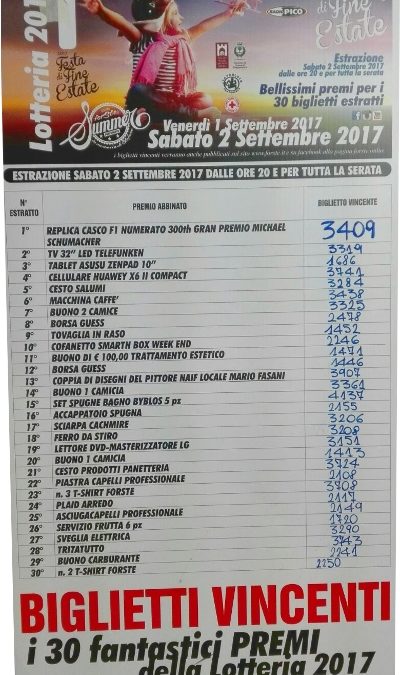 Lotteria 201
Festa
di Fine
Estate
Summer
RADIO PICO
di Fine
Estate
Estrazione
Sabato 2 Settembre 2017
dalle ore 20 e per tutta la serata
Bellissimi premi per i
30 biglietti estratti
Venerdì 1 Settembre 2017
Sabato 2 Settembre 2017
ESTRAZIONE SABATO 2 SETTEMBRE 2017 DALLE ORE 20 E PER TUTTA LA SERATA
N° ESTRATTO PREMIO ABBINATO BIGLIETTO VINCENTE
1° REPLICA CASCO F1 NUMERATO 300th GRAN PREMIO MICHAEL SCHUMACHER 3409
2° TV 32" LED TELEFUNKEN 3319
3° TABLET ASUSU ZENPAD 10" 1686
4° CELLULARE HUAWEY X6 II COMPACT 3741
5° CESTO SALUMI 3284
6° MACCHINA CAFFE' 3438
7° BUONO 2 CAMICE 3325
8° BORSA GUESS 2478
9° TOVAGLIA IN RASO 1452
10° COFANETTO SMARTH BOX WEEK END 2246
11° BUONO DI € 100,00 TRATTAMENTO ESTETICO 1471
12° BORSA GUESS 1446
13° COPPIA DI DISEGNI DEL PITTORE NAIF LOCALE MARIO FASANI 3907
14° BUONO 1 CAMICIA 3361
15° SET SPUGNE BAGNO BYBLOS 5 pz 4137
16° ACCAPPATOIO SPUGNA 2155
17° SCIARPA CACHMIRE 3206
18° FERRO DA STIRO 3208
19° LETTORE DVD-MASTERIZZATORE LG 3151
20° BUONO 1 CAMICIA 1413
21° CESTO PRODOTTI PANETTERIA 3724
22° PIASTRA CAPELLI PROFESSIONALE 2108
23° n. 3 T-SHIRT FORSTE 3708
24° PLAID ARREDO 2117
25° ASCIUGACAPELLI PROFESSIONALE 2149
26° SERVIZIO FRUTTA 6 pz 1720
27° SVEGLIA ELETTRICA 3290
28° TRITATUTTO 3743
29° BUONO CARBURANTE 2241
30° n. 2 T-SHIRT FORSTE 2250
BIGLIETTI VINCENTI
i 30 fantastici PREMI
della Lotteria 2017